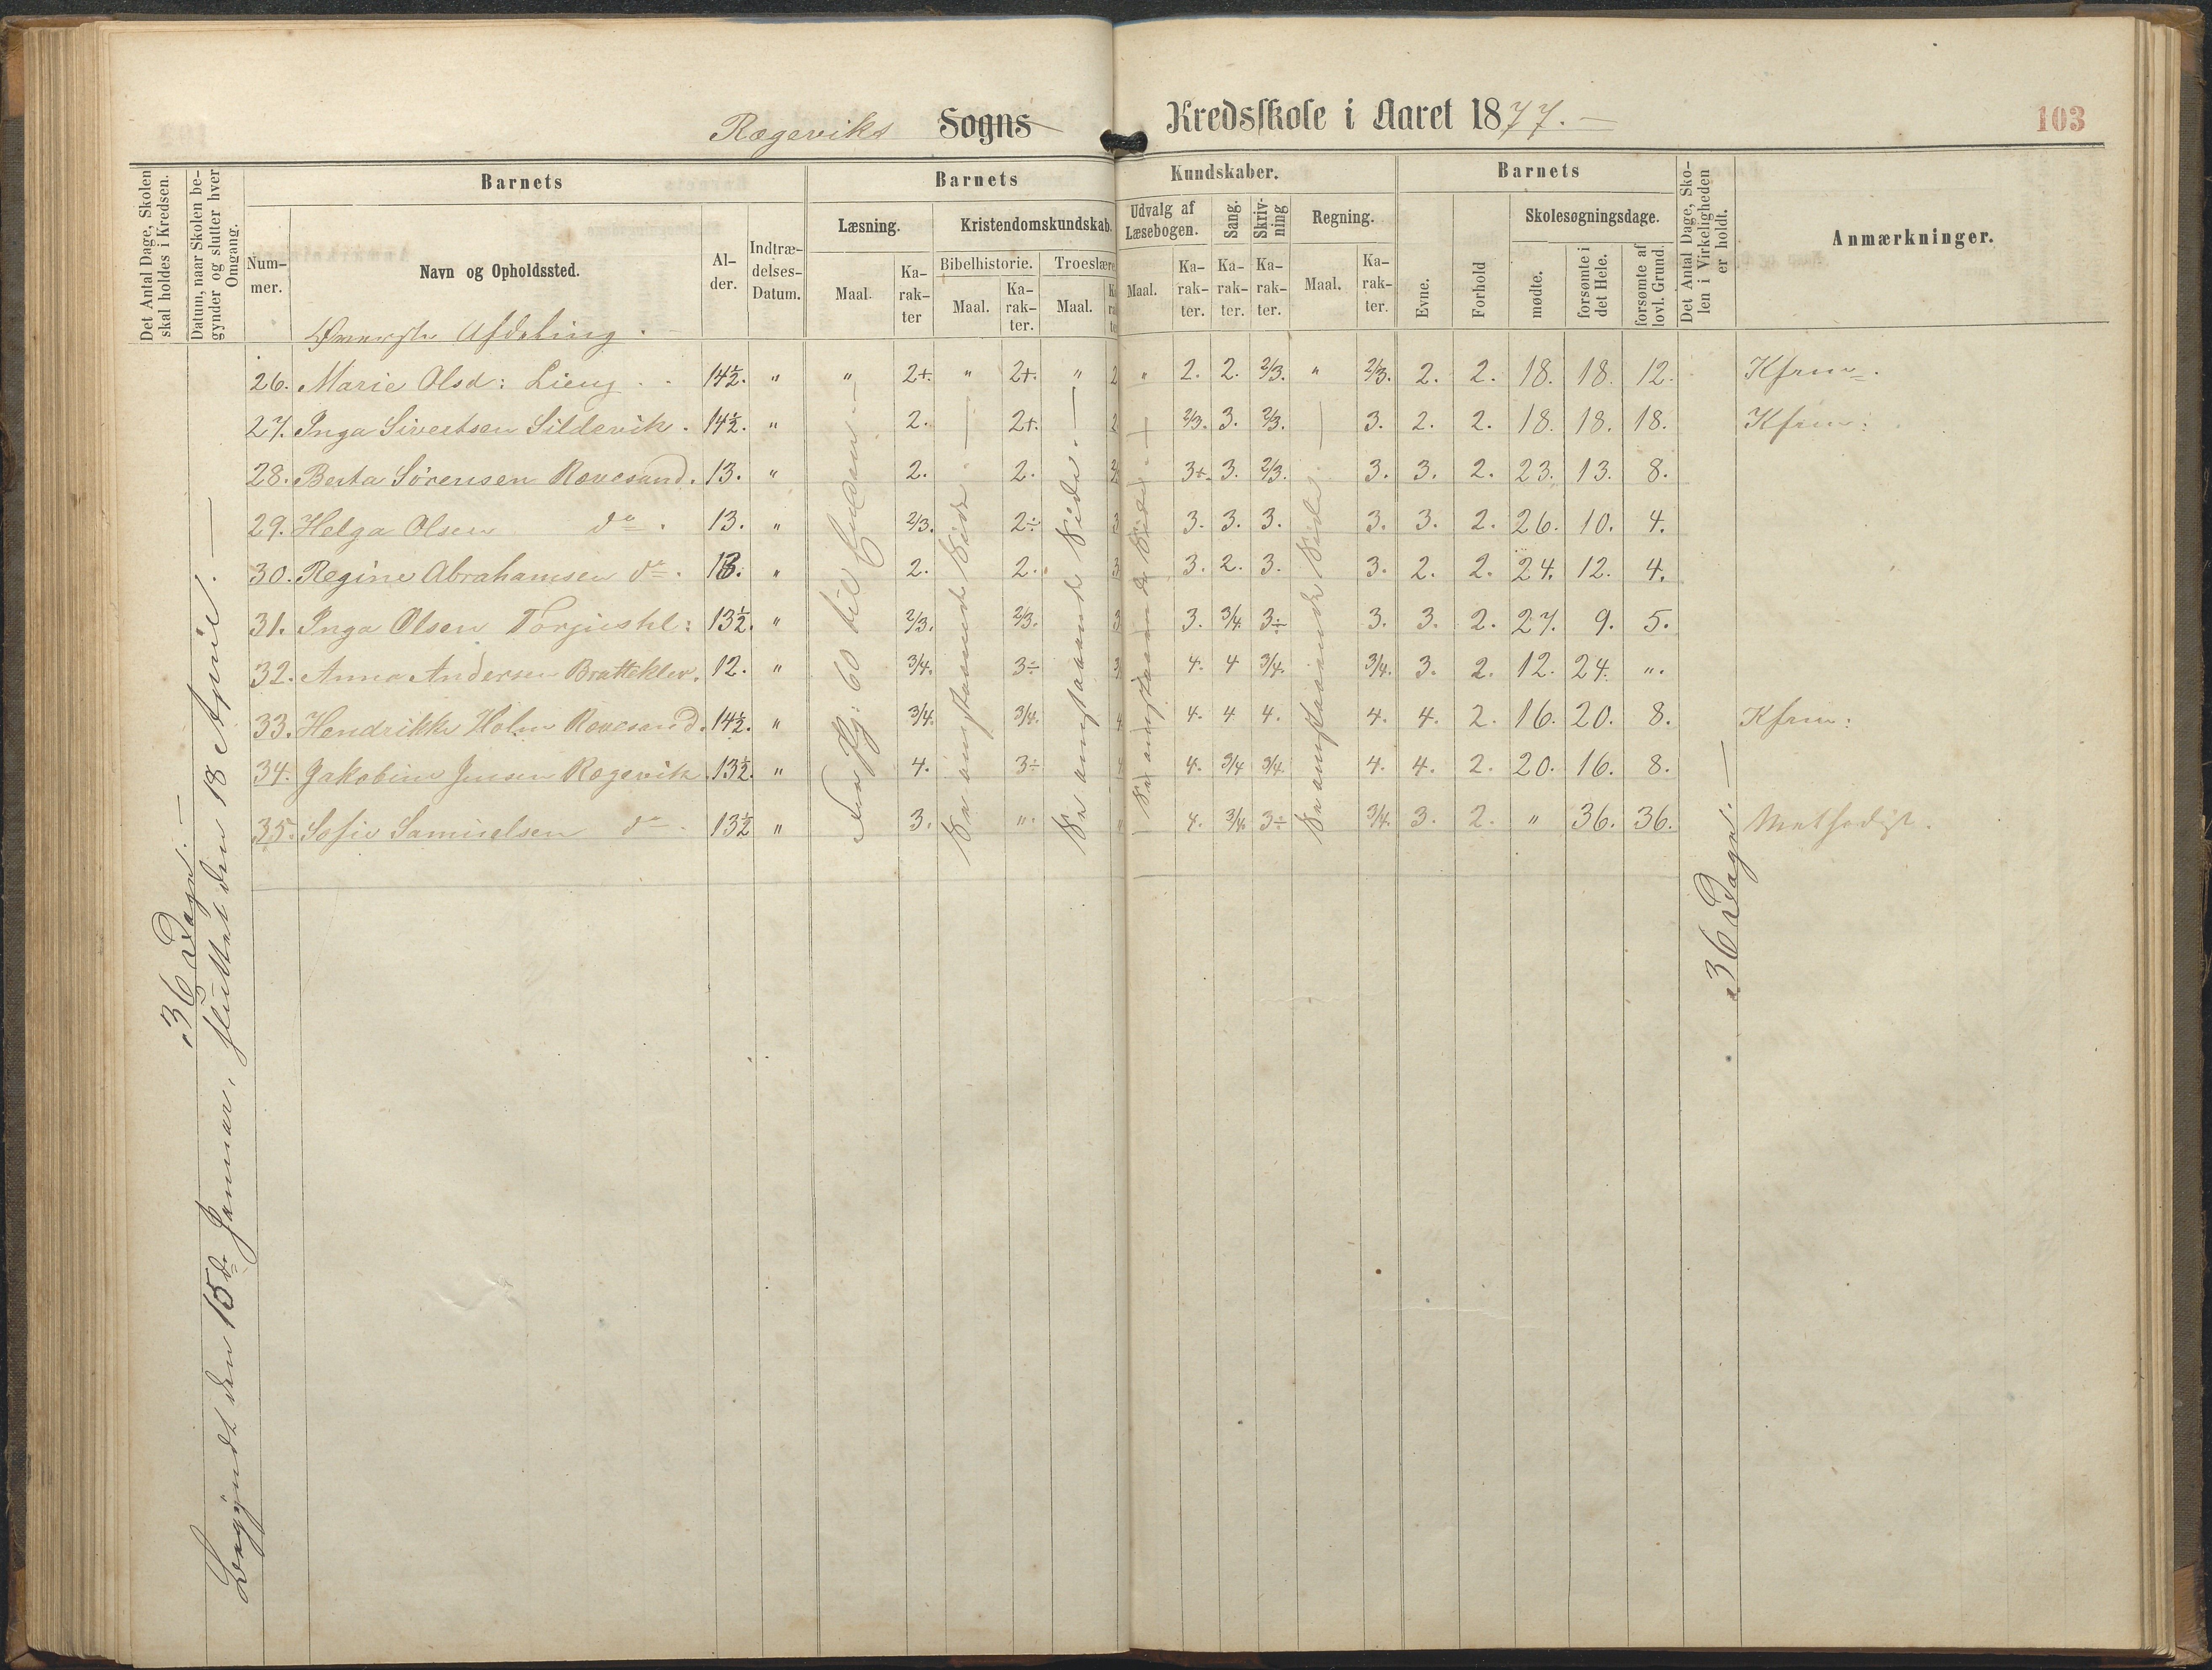 Rægeviks Sogns Kredsskole i Aaret 1877.
103
Det Antal Dage, Skolen skal holdes i Kredsen.
Datum, naar Skolen begynder og slutter hver Omgang.
Barnets
Barnets
Kundskaber.
Barnets
Det Antal Dage, Skolen i Virkeligheden er holdt.
Anmærkninger.
Nummer.
Navn og Opholdssted.
Alder.
Indtrædelses-Datum.
Læsning.
Kristendomskundskab.
Udvalg af Læsebogen.
Sang.
Skrivning
Regning.
Evne.
Forhold
Skolesøgningsdage.
Bibelhistorie.
Troeslære
Maal.
Karakter
Maal.
Karakter.
Maal.
Maal.
Karakter.
Karakter.
Karakter.
Maal.
Karakter.
mødte.
forsømte i det Hele.
forsømte af lovl. Grund.
Øverste Afdeling.
26. Marie Olsd: Lieng . . 14½. " " 2+. " 2+. " 2 " 2. 2. 2/3. " 2/3. 2. 2. 18. 18. 12. Kfrm.
27. Inga Sivertsen Sildevik. 14½. " 2. 2+. 2 2/3. 3. 2/3. 3. 2. 2. 18. 18. 18. Kfrm:
28. Berta Sörensen Rævesand. 13. " 2. 2. 3+. 3. 2/3. 3. 3. 2. 23. 13. 8.
29. Helga Olsen do. 13. " 2/3. 2÷ 3. 3. 3. 3. 3. 2. 26. 10. 4.
30. Regine Abrahamsen do. 13. " 2. 2. 3. 2. 3. 3. 2. 2. 24. 12. 4.
31. Inga Olsen Torjushl: 13½. " 2/3. 2/3. 3. 3/4. 3÷ 3. 3. 2. 27. 9. 5.
32. Anna Andersen Bratteklev. 12. " 3/4. 3÷ 4. 4 3/4. 3/4. 3. 2. 12. 24. ".
33. Hendrikke Holm Rævesand. 14½. " 3/4. 3/4. 4. 4 4. 4. 4. 2. 16. 20. 8. Kfrm:
34. Jakobine Jensen Rægevik 13½. " 4. 3÷ 4. 3/4 3/4. 4. 4. 2. 20. 16. 8.
35. Sofie Samuelsen do. 13½ " 3. ". 4. 3/4. 3÷ 3/4. 3. 2. " 36. 36. Methodist.
36 Dage.
Begyndt den 15de Januar, sluttet den 18 April.
Fra Pg: 60 til Enden.
Se omstaaende Side.
Se omstaaende Side.
Se omstaaende Side.
Se omstaaende Side.
36 Dage.